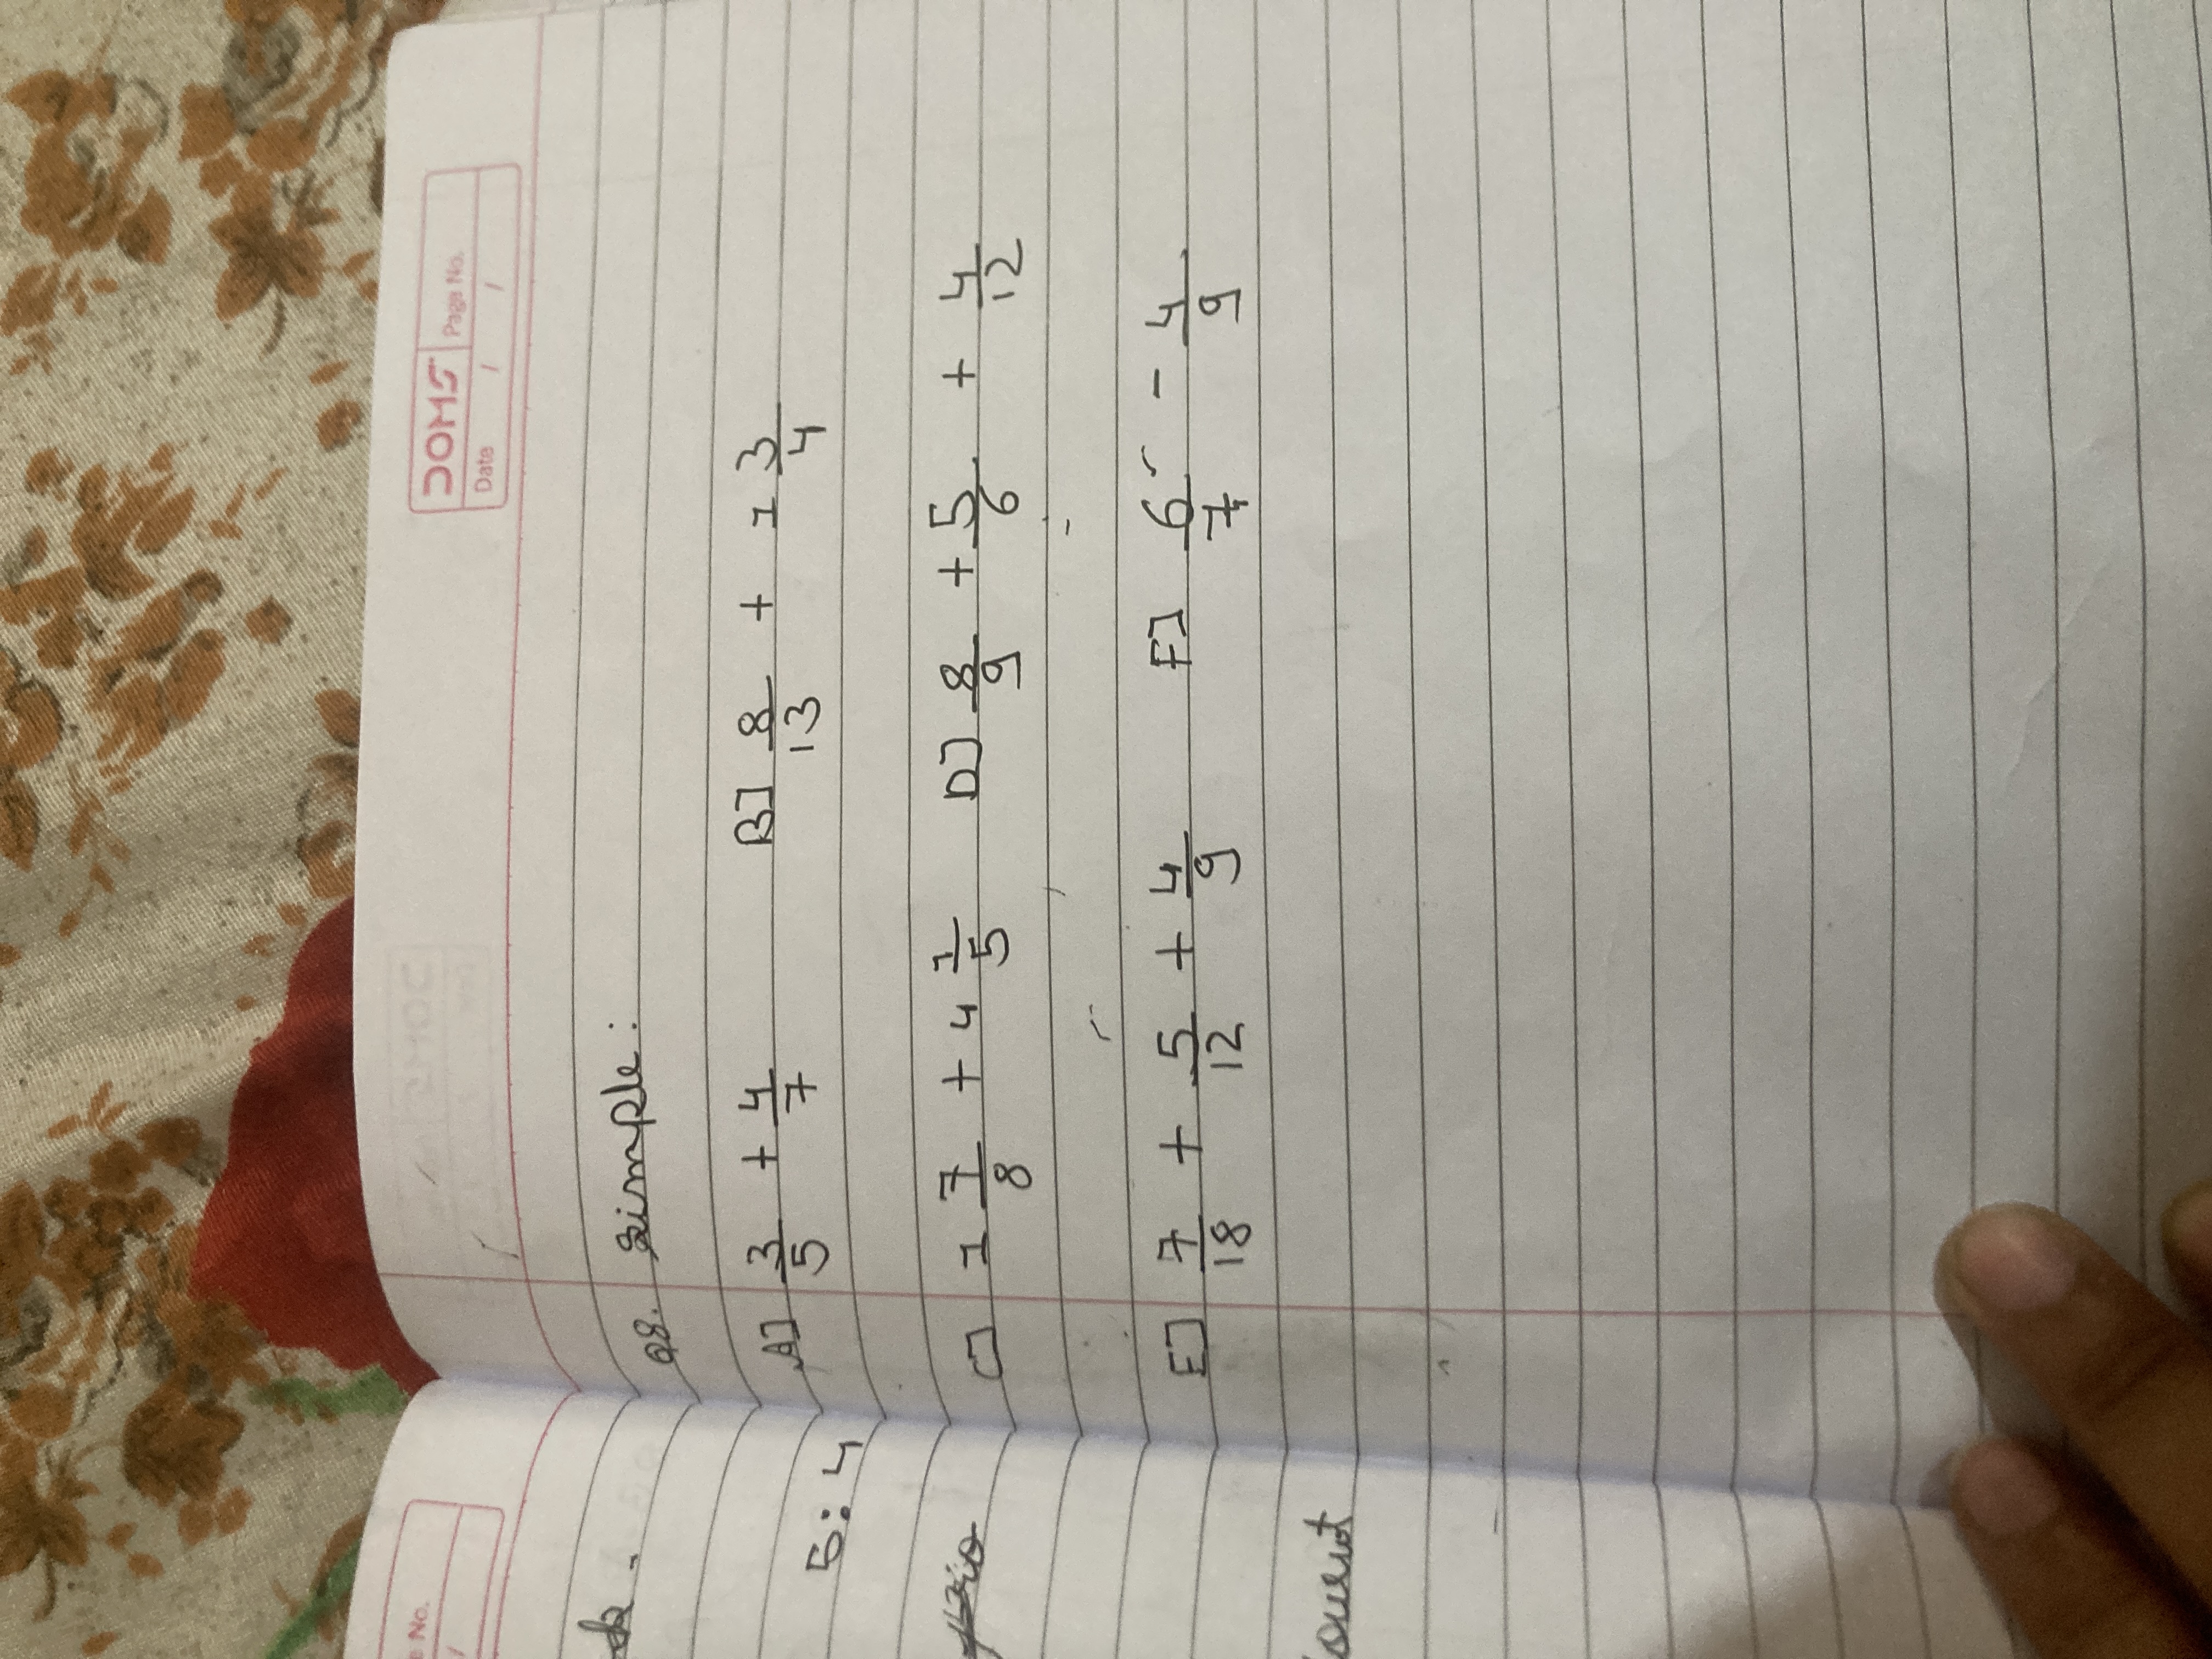 DOMS Page No.
Date / /
Q8. Simple:
A] 3/5 + 4/7 B] 8/13 + 1 3/4
C] 1 7/8 + 4 1/5 D] 8/9 + 5/6 + 4/12
E] 7/18 + 5/12 + 4/9 F] 6/7 - 4/9
e No.
/
5:4